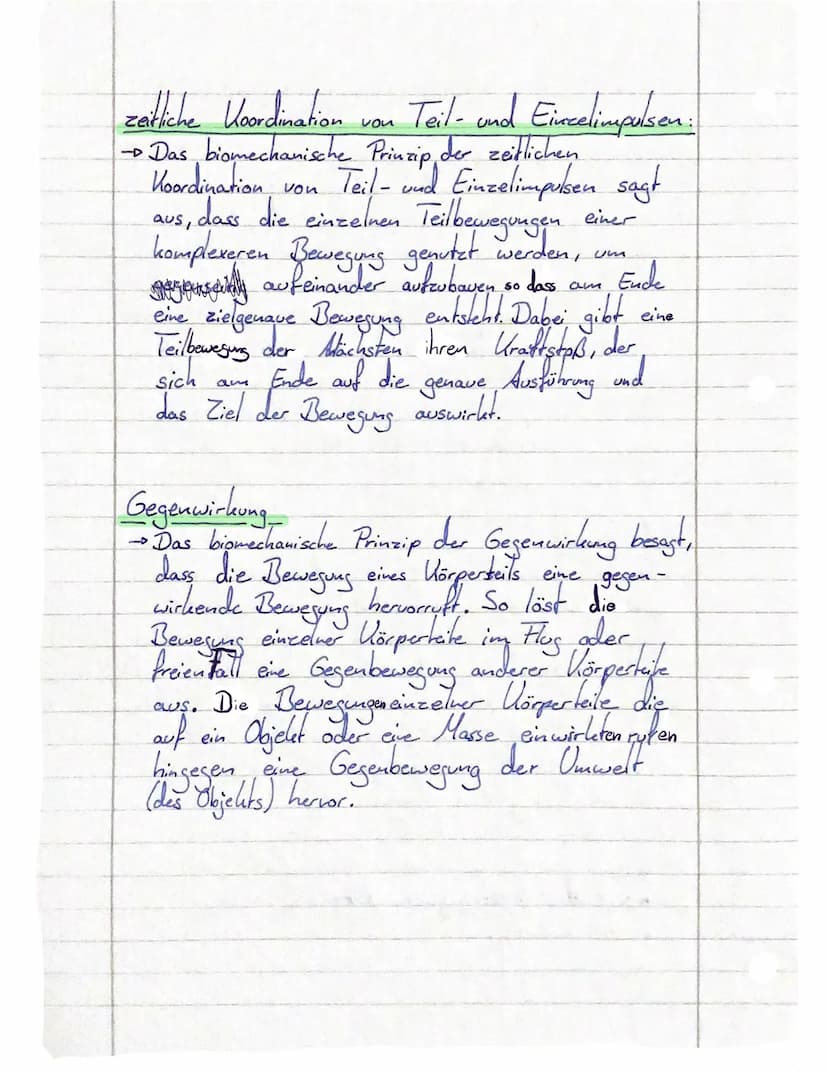 zeitliche Koordination von Teil- und Einzelimpulsen:
→ Das biomechanische Prinzip der zeitlichen
Koordination von Teil- und Einzelimpulsen sagt
aus, dass die einzelnen Teilbewegungen einer
komplexeren Bewegung genutzt werden, um
aufeinander aufzubauen so dass am Ende
eine zielgenaue Bewegung entsteht. Dabei gibt eine
Teilbewegung der Nächsten ihren Kraftstoß, der
sich am Ende auf die genaue Ausführung und
das Ziel der Bewegung auswirkt.
Gegenwirkung
→ Das biomechanische Prinzip der Gegenwirkung besagt,
dass die Bewegung eines Körperteils eine gegen-
wirkende Bewegung hervorruft. So löst die
Bewegung einzelner Körperteile im Flug oder
freien Fall eine Gegenbewegung anderer Körperteile
aus. Die Bewegungen einzelner Körperteile die
auf ein Objekt oder eine Masse einwirkten rufen
hingegen eine Gegenbewegung der Umwelt
(des Objekts) hervor.